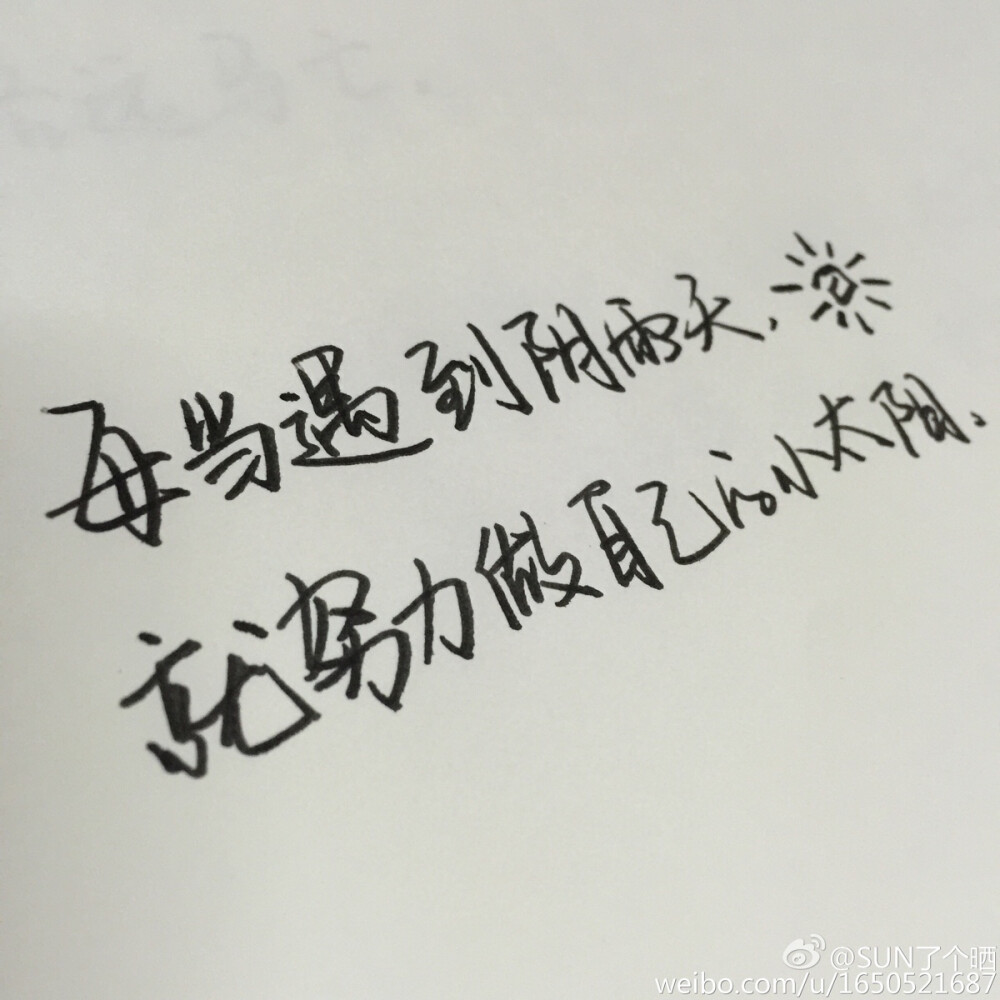 每当遇到阴雨天,
就努力做自己的小太阳.
@SUN了个晒
weibo.com/u/1650521687